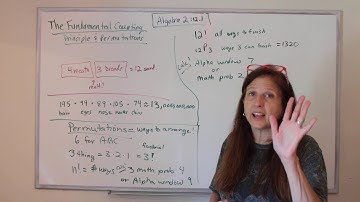 The Fundamental Counting
Principle & Permutations
Algebra 2: 12.1
4 meats 3 breads = 12 sand.
↑ mult!
195 · 99 · 89 · 105 · 74 = 13,000,000,000
hair eyes nose mouth chin
Permutations = ways to arrange!
6 for ABC
factorial
3-thing = 3·2·1 = 3!
n! = # ways
math prob 4
or Alpha window 9
12! all ways to finish
12P3 ways 3 can finish = 1320
calc)
Alpha window 7
or
math prob 2